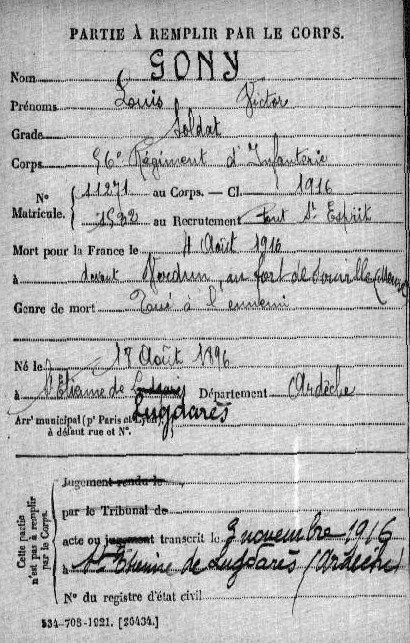 PARTIE À REMPLIR PAR LE CORPS.
Nom GONY
Prénoms Louis Victor
Grade Soldat
Corps 96e Régiment d'Infanterie
N° Matricule. 11271 au Corps. — Cl. 1916
1532 au Recrutement Pont St Esprit
Mort pour la France le 4 Août 1916
à devant Verdun, au fort de Souville (Meuse)
Genre de mort Tué à l'ennemi
Né le 18 Août 1896
à St Etienne de Département Ardèche
Lugdarès
Arrt municipal (pr Paris et Lyon),
à défaut rue et N°.
Cette partie n'est pas à remplir par le Corps.
Jugement rendu le
par le Tribunal de
acte ou jugement transcrit le 3 novembre 1916
à St Etienne de Lugdarès (Ardèche)
N° du registre d'état civil
534-708-1921. [26434.]